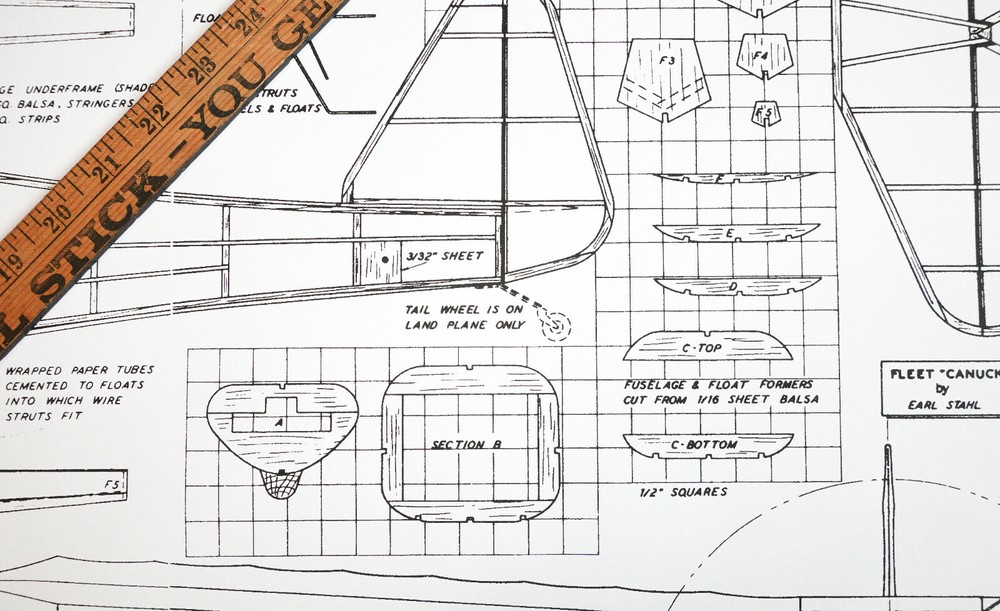 24
23
22
21
20
19
STICK-YOU GE
GE UNDERFRAME (SHADE
SQ. BALSA, STRINGERS
Q. STRIPS
FLO
STRUTS
ELS & FLOATS
F3
F4
F5
F
E
D
C-TOP
3/32" SHEET
TAIL WHEEL IS ON
LAND PLANE ONLY
FUSELAGE & FLOAT FORMERS
CUT FROM 1/16 SHEET BALSA
C-BOTTOM
1/2" SQUARES
WRAPPED PAPER TUBES
CEMENTED TO FLOATS
INTO WHICH WIRE
STRUTS FIT
A
SECTION B
F5
FLEET "CANUCK
by
EARL STAHL